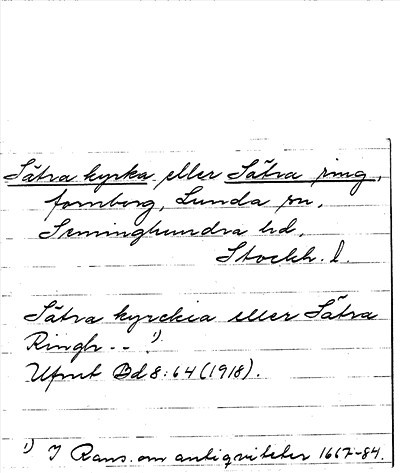 Sätra kyrka eller Sätra ring,
fornborg, Lunda sn,
Seminghundra hd,
Stockh. l.
Sätra kyrckia eller Sätra
Ringh - - ¹)
Ufmt Bd 8: 64 (1918).
¹) I Rans. om antiqviteter 1667-84.